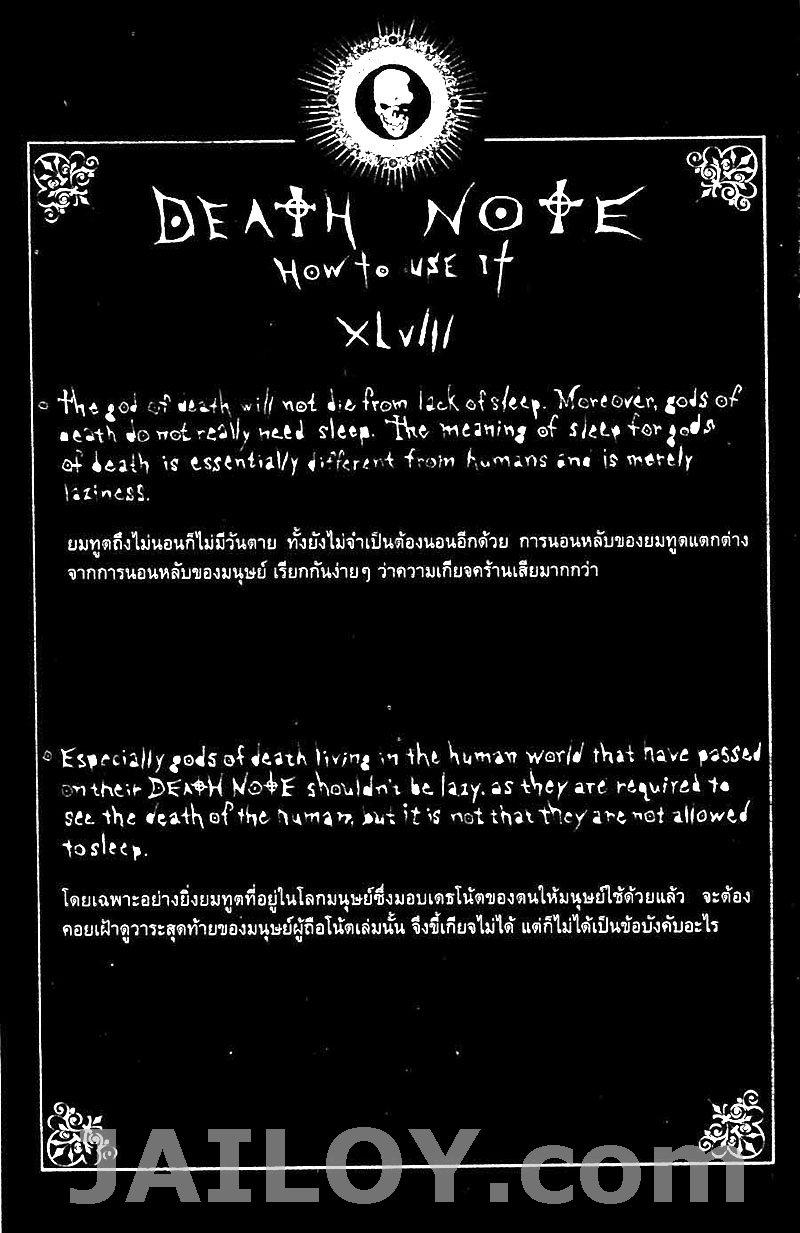 DEATH NOTE
How to use it
XLVIII
The god of death will not die from lack of sleep. Moreover, gods of
death do not really need sleep. The meaning of sleep for gods
of death is essentially different from humans and is merely
laziness.
ยมทูตถึงไม่นอนก็ไม่มีวันตาย ทั้งยังไม่จำเป็นต้องนอนอีกด้วย การนอนหลับของยมทูตแตกต่าง
จากการนอนหลับของมนุษย์ เรียกกันง่ายๆ ว่าความเกียจคร้านเสียมากกว่า
Especially gods of death living in the human world that have passed
on their DEATH NOTE shouldn't be lazy, as they are required to
see the death of the human, but it is not that they are not allowed
to sleep.
โดยเฉพาะอย่างยิ่งยมทูตที่อยู่ในโลกมนุษย์ซึ่งมอบเดธโน้ตของตนให้มนุษย์ใช้ด้วยแล้ว จะต้อง
คอยเฝ้าดูวาระสุดท้ายของมนุษย์ผู้ถือโน้ตเล่มนั้น จึงขี้เกียจไม่ได้ แต่ก็ไม่ได้เป็นข้อบังคับอะไร
JAILOY.com